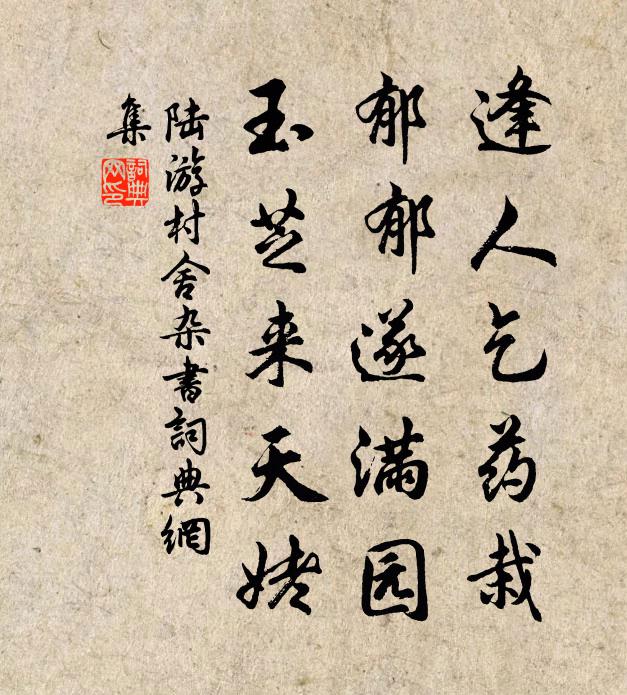 逢人乞药栽
郁郁遂满园
玉芝来天姥
陆游村舍杂書詞典網
集
詞典網印